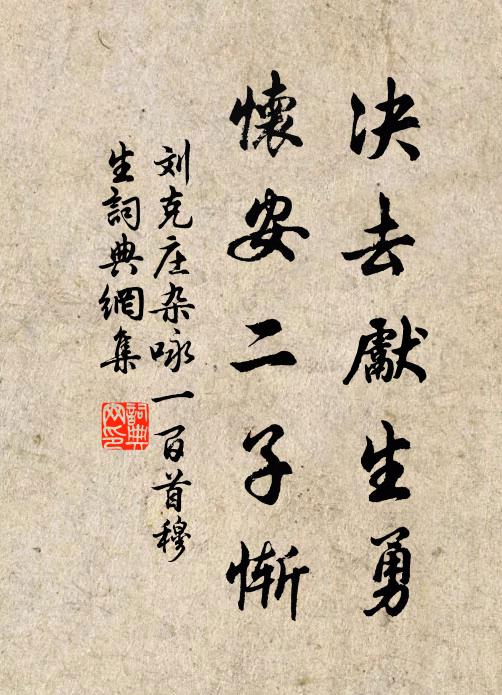 决去獻生勇
懷安二子慚
刘克庄杂咏一百首穆
生詞典網集
詞典
网印